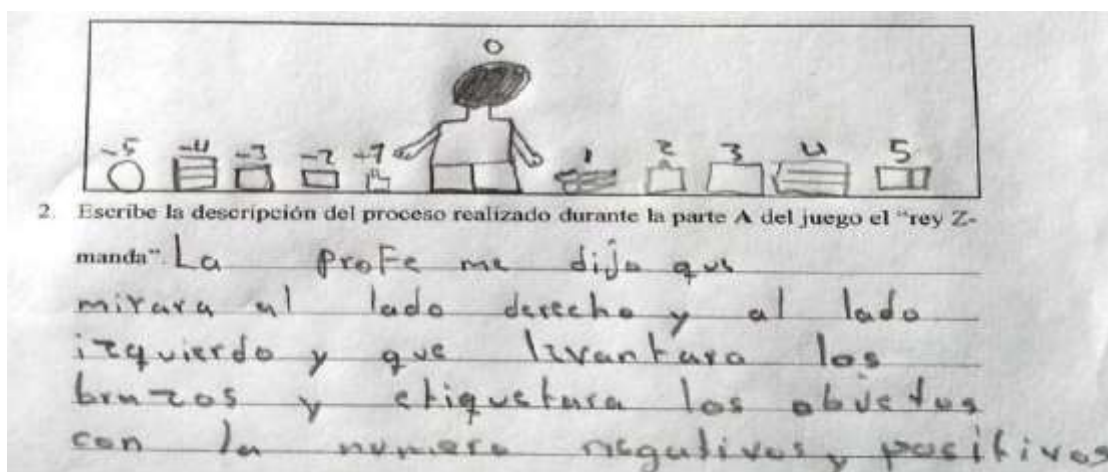 0
-5 -4 -3 -2 -1 1 2 3 4 5
2. Escribe la descripción del proceso realizado durante la parte A del juego el “rey Z-
manda”. La profe me dijo que
mirara al lado derecho y al lado
izquierdo y que levantara los
brazos y etiquetara los objetos
con la numero negativos y positivos